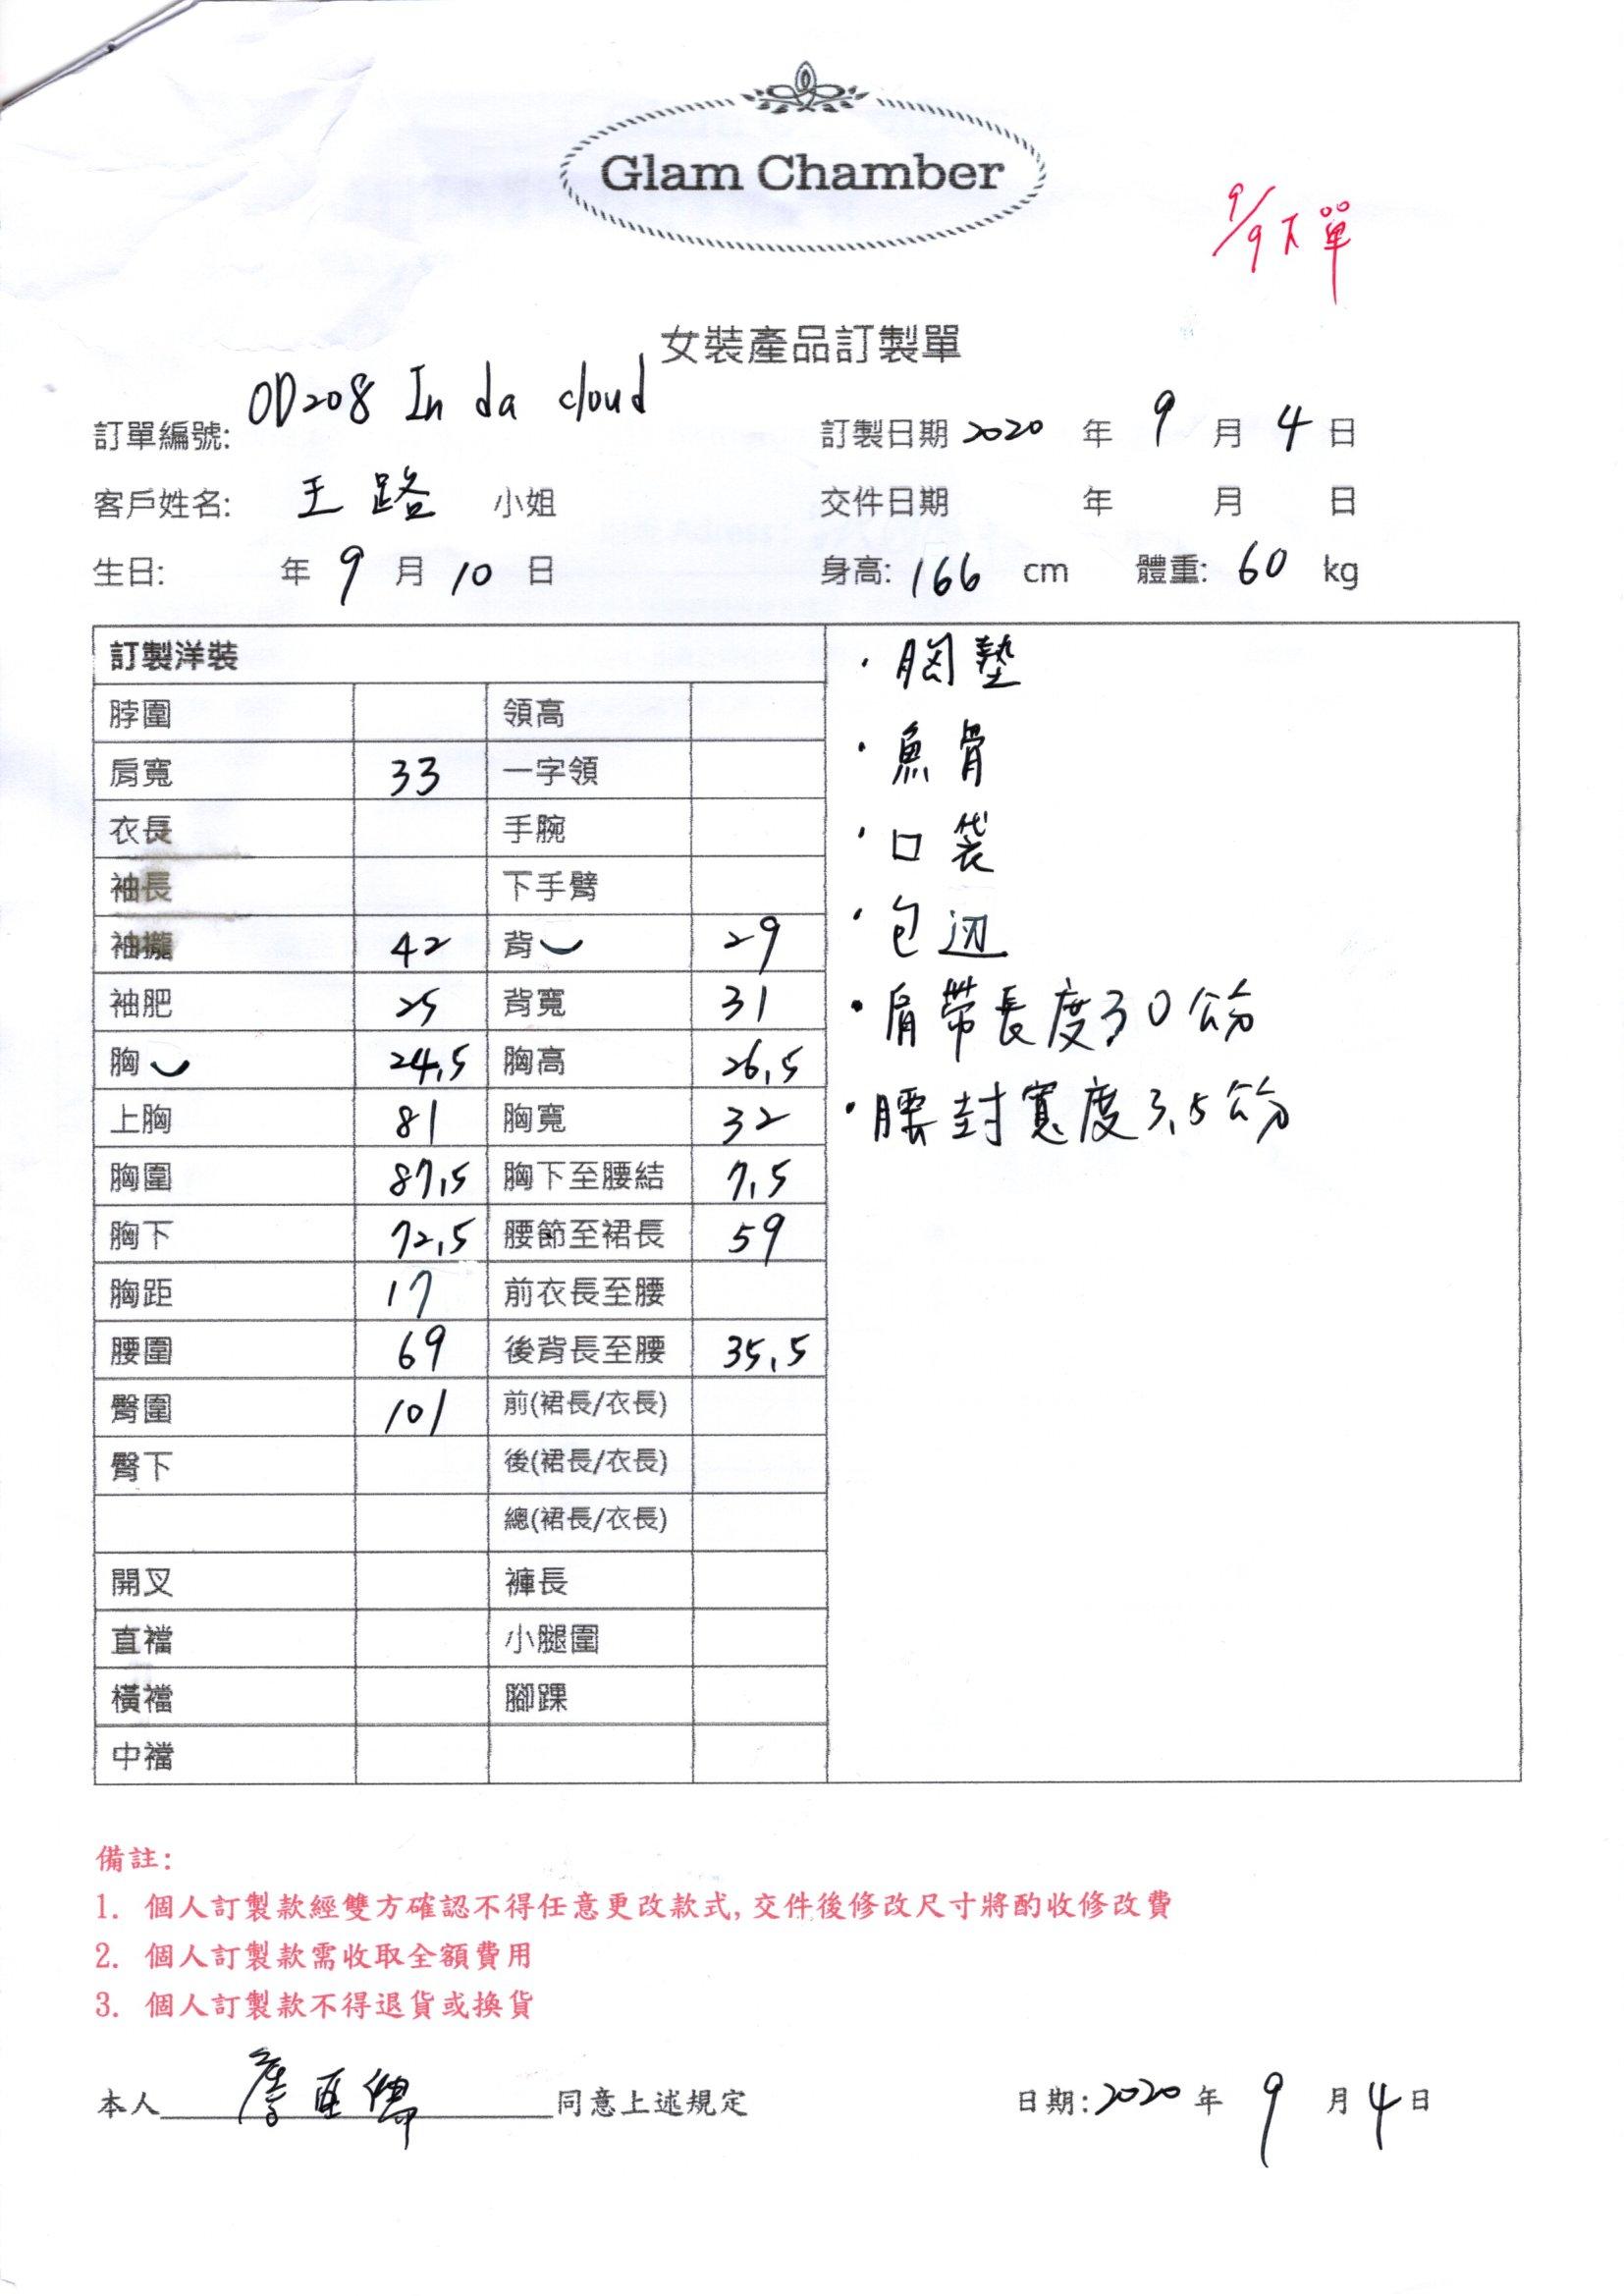 Glam Chamber
9/9下單
女裝產品訂製單
訂單編號: OD208 In da cloud
訂製日期 2020 年 9 月 4 日
客戶姓名: 王路 小姐
交件日期 年 月 日
生日: 年 9 月 10 日
身高: 166 cm 體重: 60 kg
訂製洋裝
脖圍 領高
肩寬 33 一字領
衣長 手腕
袖長 下手臂
袖攏 42 背 29
袖肥 25 背寬 31
胸 24,5 胸高 26,5
上胸 81 胸寬 32
胸圍 87,5 胸下至腰結 7,5
胸下 72,5 腰節至裙長 59
胸距 17 前衣長至腰
腰圍 69 後背長至腰 35,5
臀圍 101 前(裙長/衣長)
臀下 後(裙長/衣長)
總(裙長/衣長)
開叉 褲長
直襠 小腿圍
橫襠 腳踝
中襠
·胸墊
·魚骨
·口袋
·包边
·肩帶長度30公分
·腰封寬度3,5公分
備註:
1. 個人訂製款經雙方確認不得任意更改款式,交件後修改尺寸將酌收修改費
2. 個人訂製款需收取全額費用
3. 個人訂製款不得退貨或換貨
本人 同意上述規定
日期:2020 年 9 月 4 日